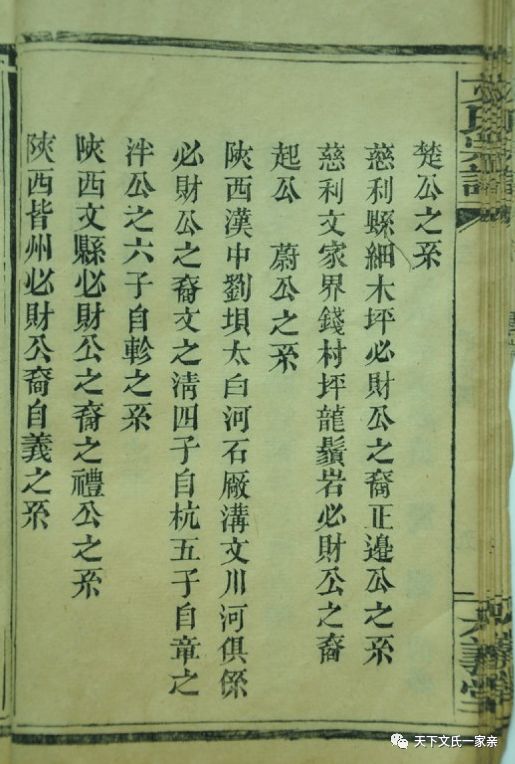 楚公之系
慈利縣細木坪必財公之裔正邉公之系
慈利文家界錢村坪龍鬚岩必財公之裔
起公　蔚公之系
陝西漢中劉埧太白河石厰溝文川河俱係
必財公之裔文之清四子自杭五子自章之
泮公之六子自軫之系
陝西文縣必財公之裔之禮公之系
陝西皆州必財公裔自義之系
文氏宗譜
天下文氏一家亲